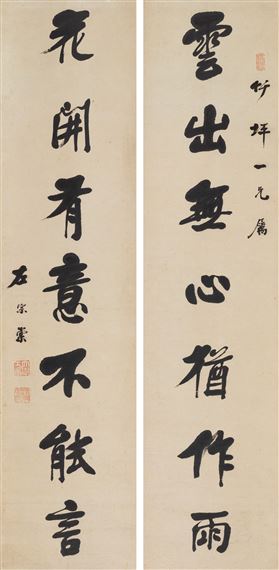 雲出無心猶作雨
竹坪一兄屬
花開有意不能言
左宗棠